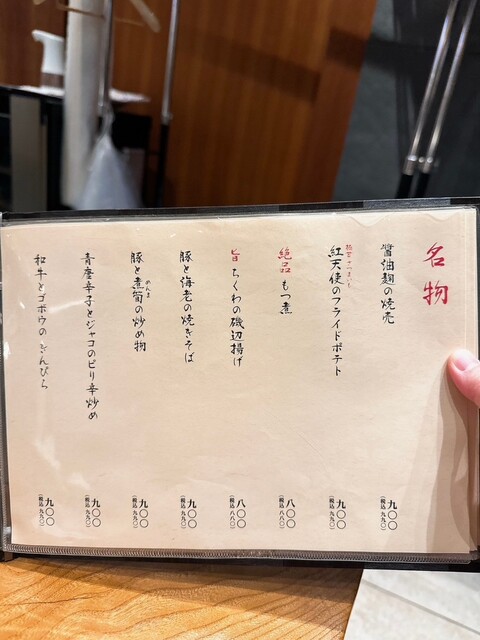 名物
醤油麹の焼売
九〇〇
(税込 九九〇)
紅天使のフライドポテト
九〇〇
(税込 九九〇)
絶品 もつ煮
八〇〇
(税込 八八〇)
旨 ちくわの磯辺揚げ
八〇〇
(税込 八八〇)
豚と海老の焼きそば
九〇〇
(税込 九九〇)
めんま
豚と煮筍の炒め物
九〇〇
(税込 九九〇)
青唐辛子とジャコのピリ辛炒め
九〇〇
(税込 九九〇)
和牛とゴボウのきんぴら
九〇〇
(税込 九九〇)